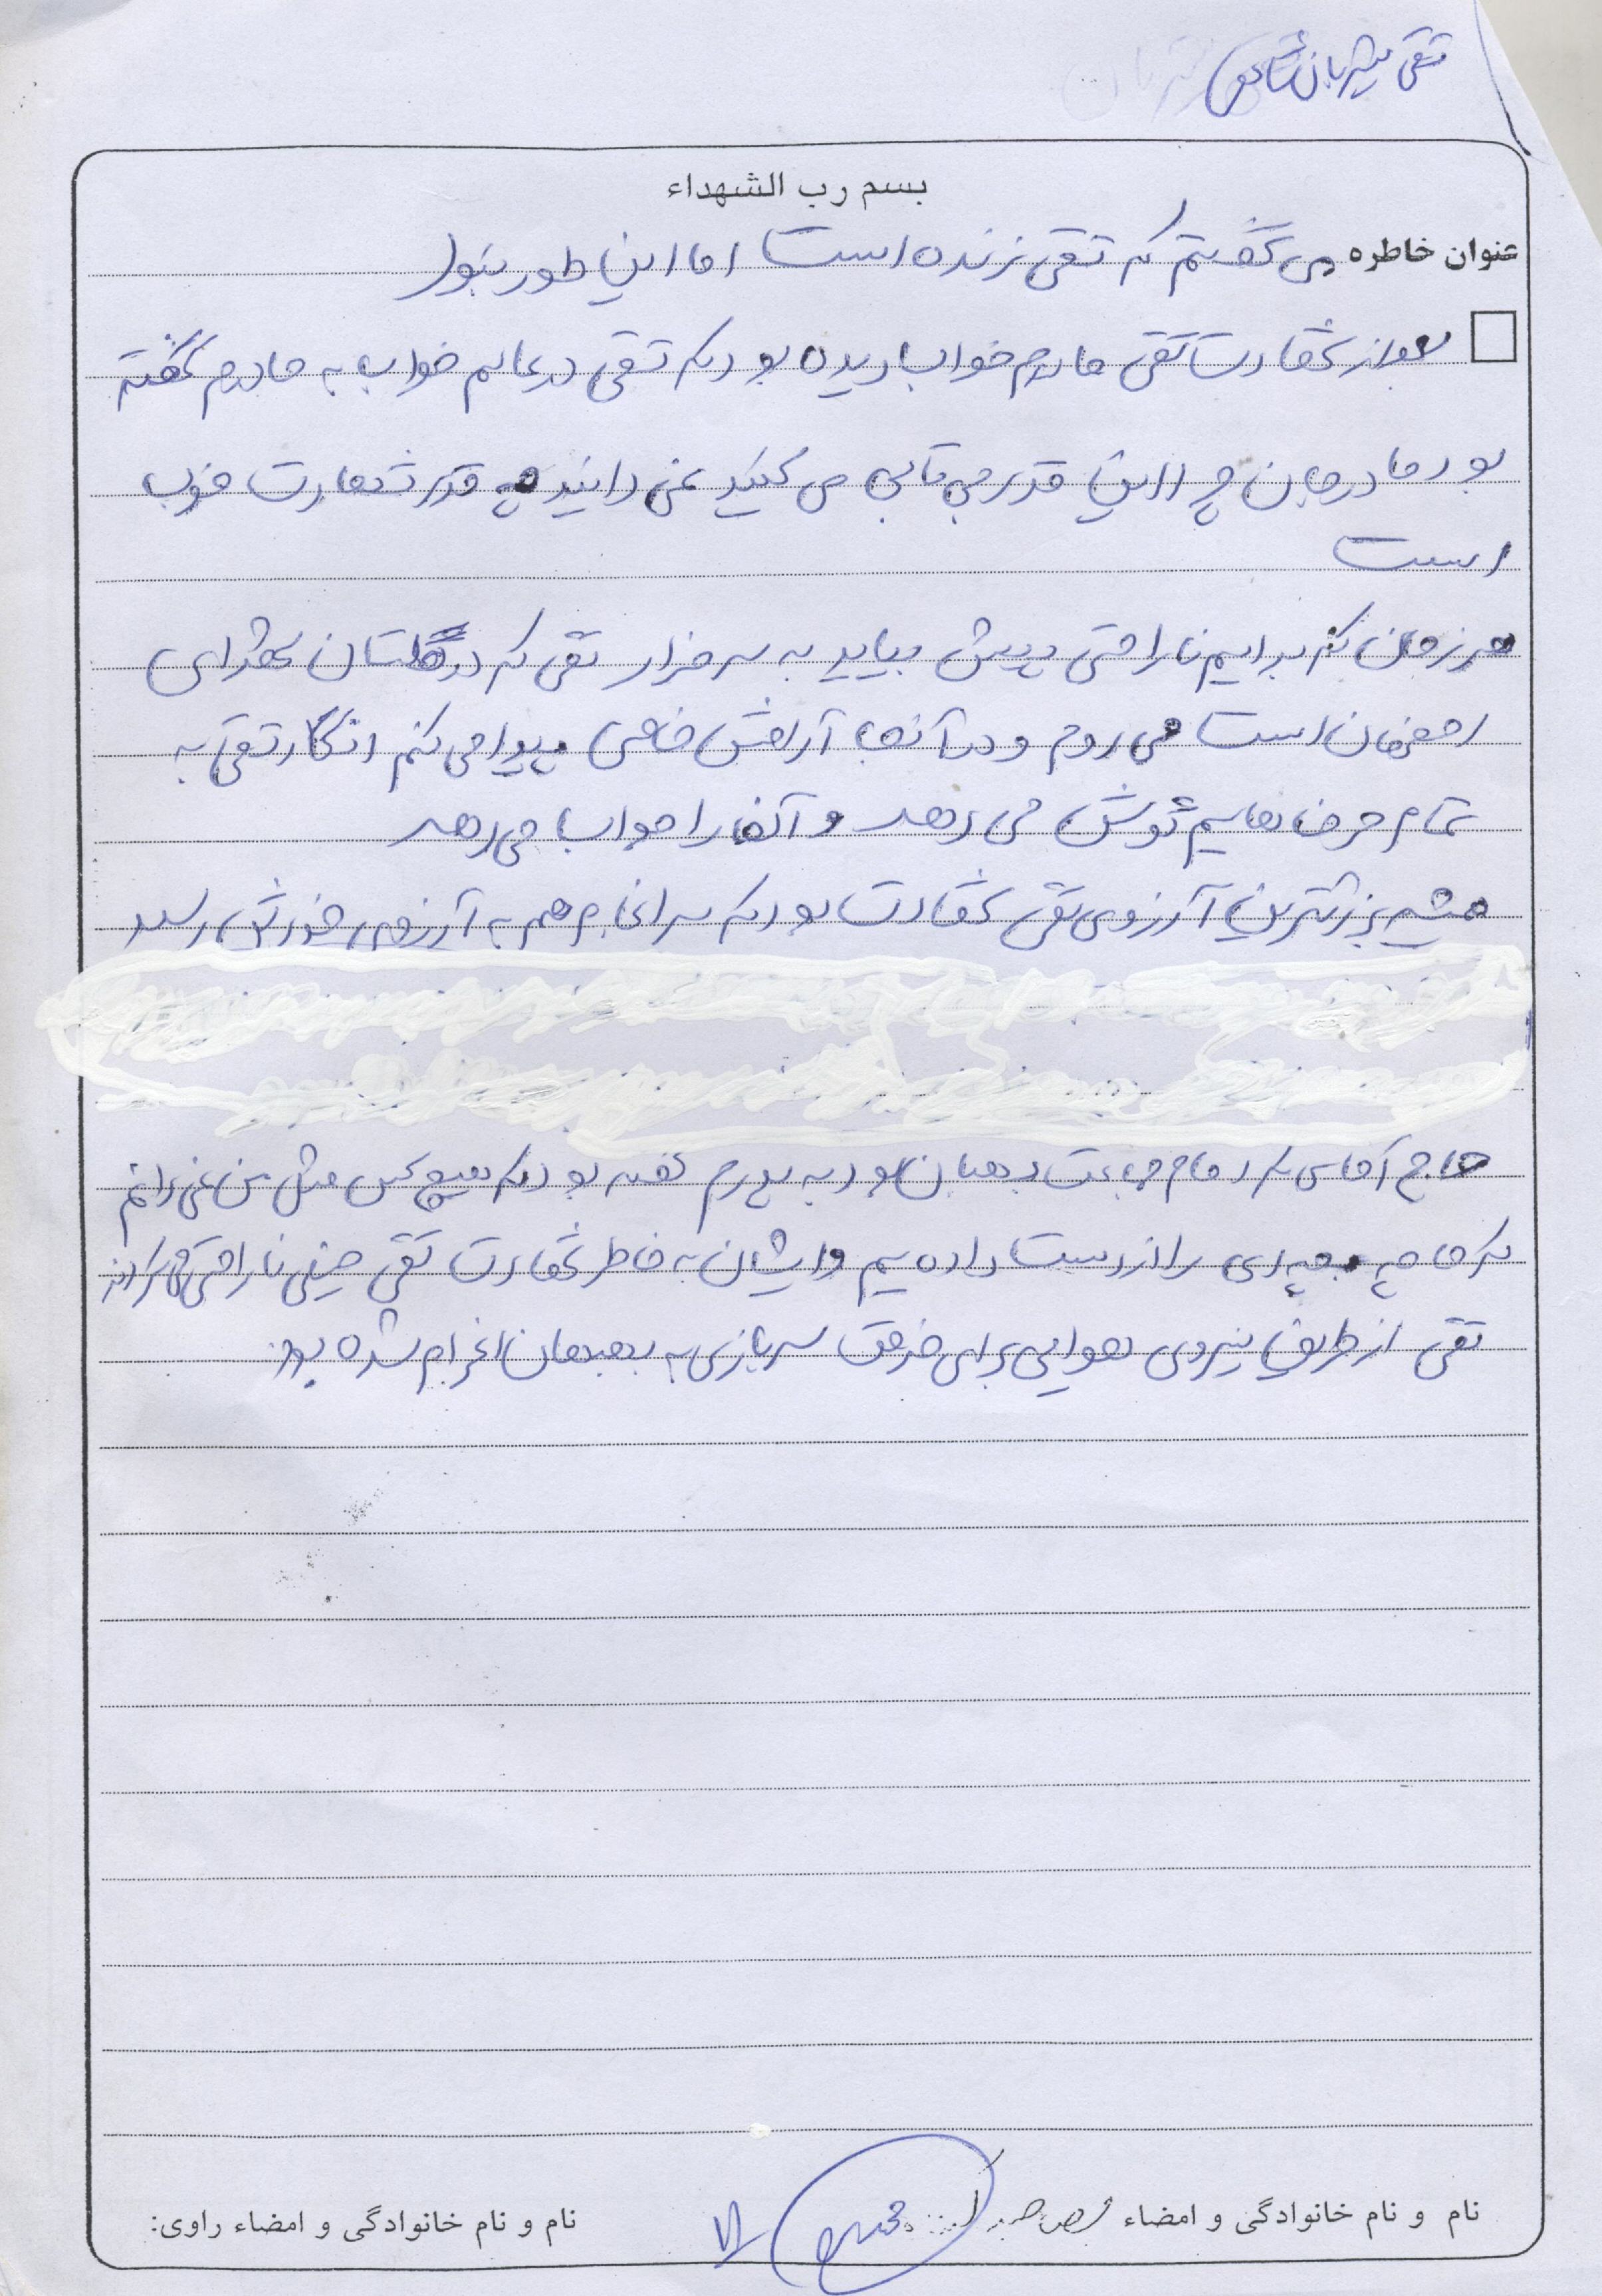 تقی شیربانی
بسم رب الشهداء
عنوان خاطره می گفتم که تقی زنده است اما این طور نبود
بعد از شهادت تقی مادرم خواب دیده بود که تقی در عالم خواب به مادرم گفته
بود مادرجان چرا این قدر بی تابی می کنید نمی دانید چه قدر شهادت خوب
است
هر زمان که برایم ناراحتی پیش بیاید به سر مزار تقی که در گلستان شهدای
اصفهان است می روم و در آنجا آرامش خاصی پیدا می کنم انگار تقی به
تمام حرف هایم گوش می دهد و آنها را جواب می دهد
همیشه بزرگترین آرزوی تقی شهادت بود که سرانجام هم به آرزوی خودش رسید
حاج آقای که امام جماعت بهبهان بود به پدرم گفته بود که هیچ کس مثل من نمی داند
که ما چه بچه ای را از دست داده یم و ایشان به خاطر شهادت تقی خیلی ناراحتی می کردند
تقی از طریق نیروی هوایی برای خدمت سربازی به بهبهان اعزام شده بود.
نام و نام خانوادگی و امضاء
نام و نام خانوادگی و امضاء راوی: